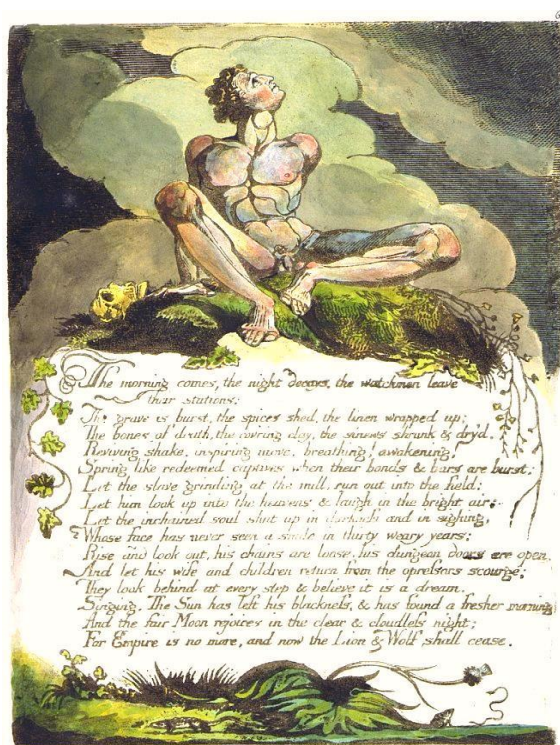 The morning comes, the night decays, the watchmen leave
their stations;
The grave is burst, the spices shed, the linen wrapped up;
The bones of death, the cov'ring clay, the sinews shrunk & dry'd.
Reviving shake, inspiring move, breathing! awakening!
Spring like redeemed captives when their bonds & bars are burst;
Let the slave grinding at the mill, run out into the field:
Let him look up into the heavens & laugh in the bright air;
Let the inchained soul shut up in darkness and in sighing,
Whose face has never seen a smile in thirty weary years;
Rise and look out, his chains are loose, his dungeon doors are open.
And let his wife and children return from the opressors scourge;
They look behind at every step & believe it is a dream.
Singing. The Sun has left his blackness, & has found a fresher morning
And the fair Moon rejoices in the clear & cloudless night;
For Empire is no more, and now the Lion & Wolf shall cease.